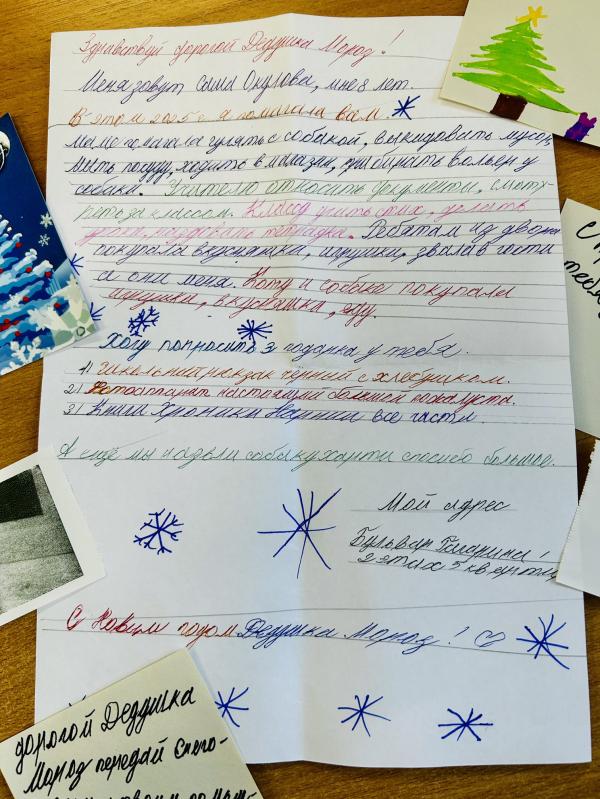 Здравствуй дорогой Дедушка Мороз!
Меня зовут Саша Окулова, мне 8 лет.
В этом 2025 г я помагала вам.
маме помагала гулять с собакой, выкидовать мусор,
мыть посуду, ходить в магазан, прибирать вольер у
собаки. Учителю относить документи, смотр-
реть за классом. Классу учить стих, делать
уроки, раздовать тетрадка. Ребятам из двора
покупала вкусняшка, игрушки, звала в гости
а они меня. Коту и собаке покупала
игрушки, вкусняшка, еду.
Хочу попросить 3 подарка у тебя.
1) Школьний рюкзак чёрний с хлебушком.
2) Фотоаппарат настоящий большой пожалуста.
3) Книги Хроники Нарнии все части.
А ещё мы назвли собаку Харти спасибо большое.
Мой адрес
Бульвар Гагарина 1
2 этаж 5 квартира
С Новым годом Дедушка Мороз!
дорогой Дедушка
Мороз передай Снего-
с
тебе